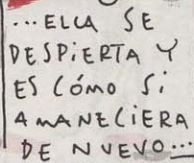 ...ELLA SE
DESPIERTA Y
ES CÓMO SI
AMANECIERA
DE NUEVO...